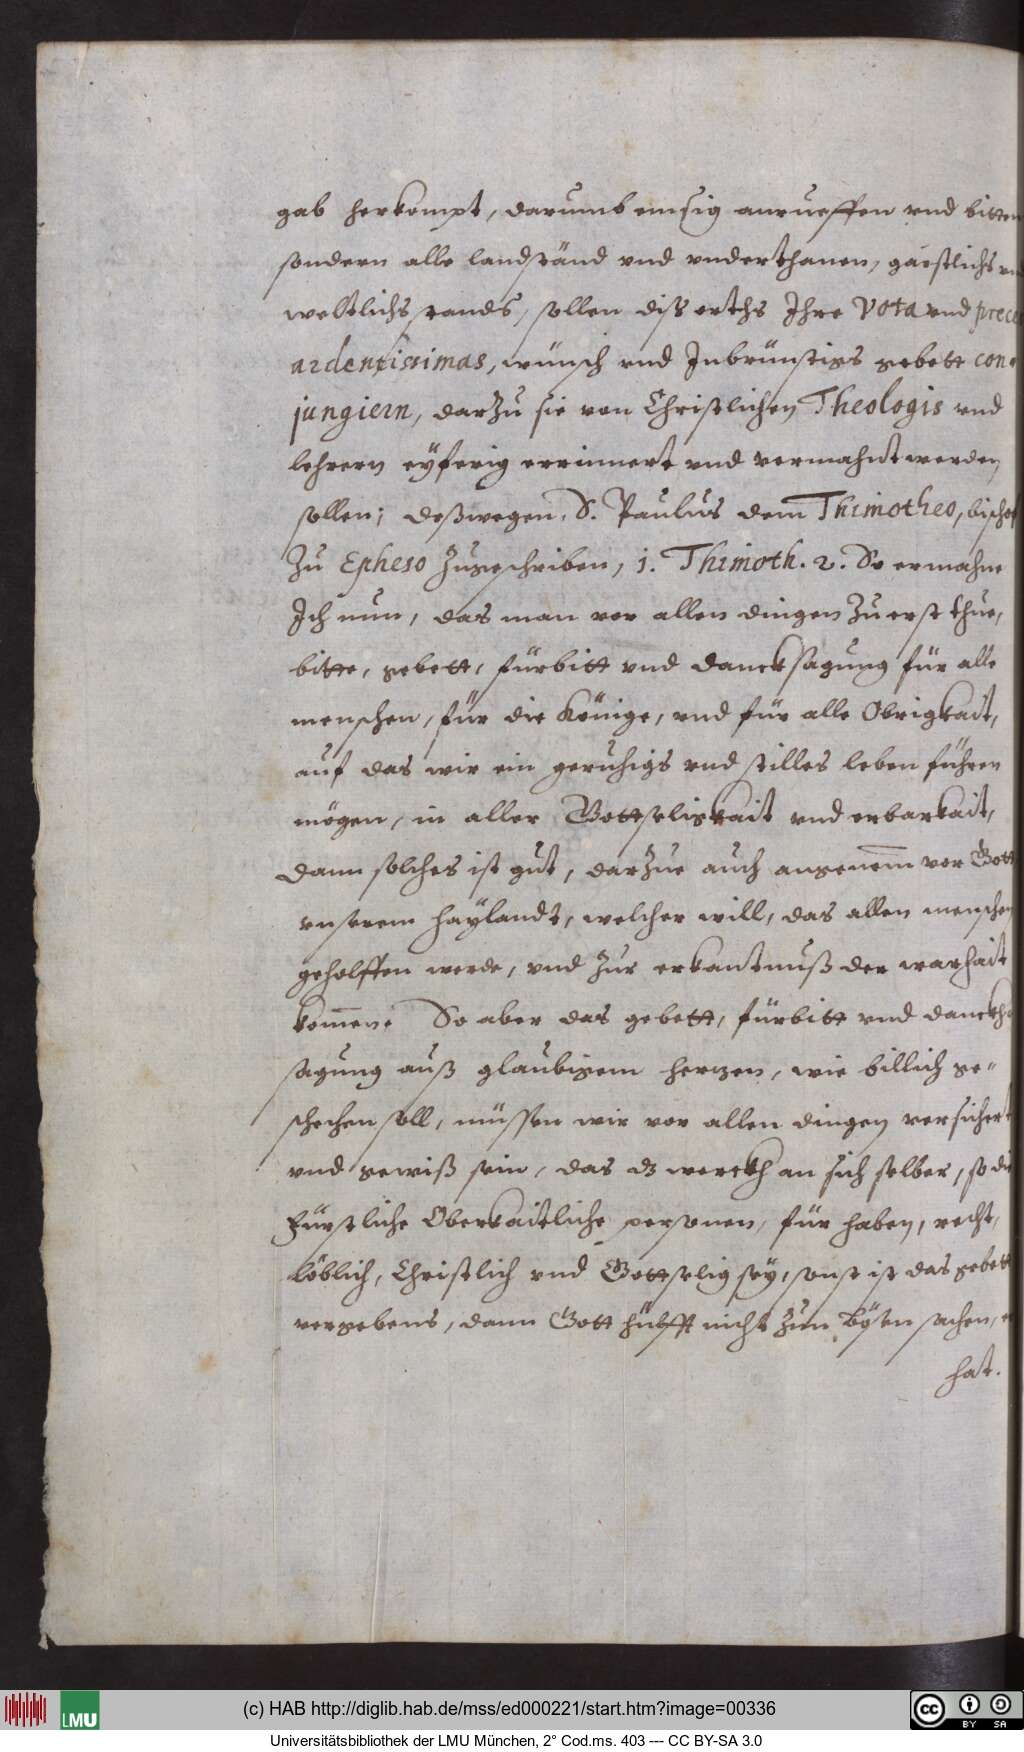 gab herkompt, darumb emsig anrueffen vnd bitten
sondern alle landständ vnd vnderthanen, gaistlichs
weltlichs stands, sollen diß orths Ihre Vota vnd preces
ardentissimas, wünsch vnd Inbrünstigs gebett con-
jungiern, darzu sie von Christlichen Theologis vnd
lehrern eyferig errinnert vnd vermahnt werden
sollen; deßwegen S. Paulus dem Thimotheo, bischof
Zu Epheso zugeschriben, 1. Thimoth. 2. So ermahne
Ich nun, das man vor allen dingen Zu erst thue,
bitte, gebett, fürbitt vnd dancksagung für alle
menschen, für die Könige, vnd für alle Obrigkait,
auf das wir ein geruhigs vnd stilles leben führen
mögen, in aller Gottseligkait vnd erbarkait,
dann solches ist gut, darzue auch angenem̅ vor Gott
vnserem haylandt, welcher will, das allen menschen
geholffen werde, vnd zur erkantnuß der warhait
kom̅en. So aber das gebett, fürbitt vnd danckh
sagung auß glaubigem herzen, wie billich ge-
schechen soll, müssen wir vor allen dingen versichert
vnd gewiß sein, das dz werckh an sich selber, so die
Fürstliche Oberkaitliche personen, für haben, recht,
löblich, Christlich vnd Gottselig sey, sonst ist das gebett
vergebens, dann Gott hülfft nicht zun bösen sachen, er
hat.
(c) HAB http://diglib.hab.de/mss/ed000221/start.htm?image=00336
LMU
CC BY SA
Universitätsbibliothek der LMU München, 2° Cod.ms. 403 --- CC BY-SA 3.0